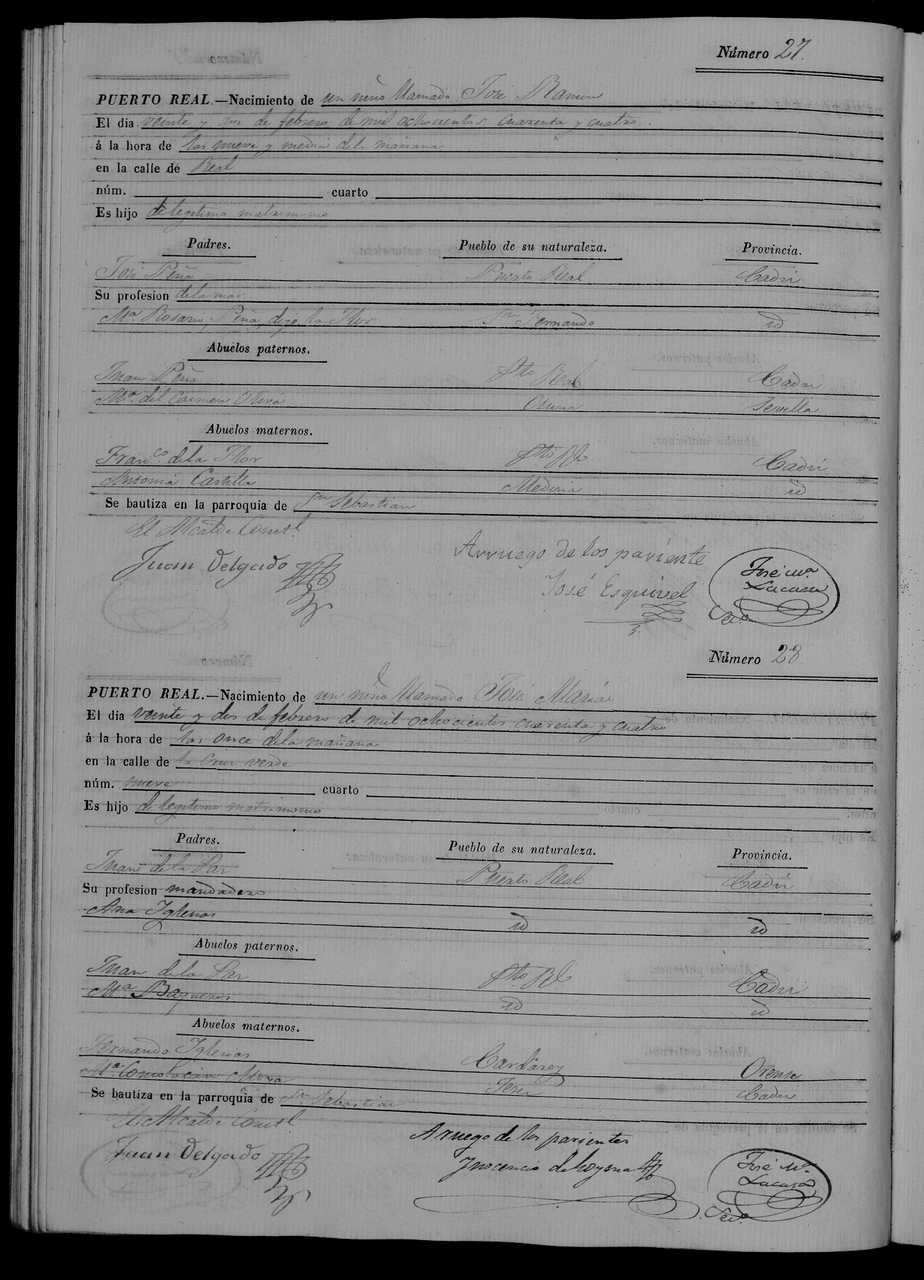 Número 27.
PUERTO REAL.—Nacimiento de un niño llamado José Ramon
El dia veinte y de febrero de mil ochocientos cuarenta y cuatro.
á la hora de las nueve y media dela mañana
en la calle de Real
núm. cuarto
Es hijo de legitimo matrimonio
Padres. Pueblo de su naturaleza. Provincia.
José Peña Puerto Real Cadiz
Su profesion dela mar
Mª Rosario Peña, digo la Flor Sn Fernando id
Abuelos paternos.
Juan Peña Pto Real Cadiz
Mª del Carmen Osuna Sevilla
Abuelos maternos.
Franco. dela Flor Pto Rl Cadiz
Antonia Castilla Medina id
Se bautiza en la parroquia de Sn Sebastian
El Alcalde Const.l
Juan Delgado
Arruego de los pariente
José Esquivel
José Mª.
Lacasa
Seco
Número 28
PUERTO REAL.—Nacimiento de un niño llamado José Maria
El dia veinte y dos de febrero de mil ochocientos cuarenta y cuatro
á la hora de las once dela mañana
en la calle de la Cruz verde
núm. nueve cuarto
Es hijo de legitimo matrimonio
Padres. Pueblo de su naturaleza. Provincia.
Juan de la Paz Puerto Real Cadiz
Su profesion mandadero
Ana Iglesias id id
Abuelos paternos.
Juan de la Paz Pto Rl Cadiz
Mª Baqueros id id
Abuelos maternos.
Fernando Iglesias Orense
Mª Cadiz
Se bautiza en la parroquia de Sn Sebastian
El Alcalde Const.l
Juan Delgado
Aruego de los parientes
Inocencio
José Mª.
Lacasa
Seco